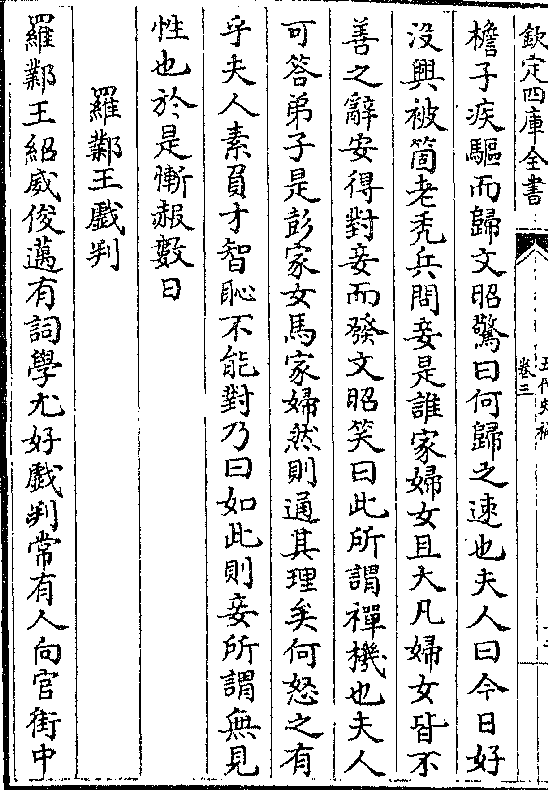 欽定四庫全書
卷三
檐子疾驅而歸文昭驚曰何歸之速也夫人曰今日好
没興被箇老秃兵問妾是誰家婦女且大凡婦女皆不
善之辭安得對妾而發文昭笑曰此所謂禪機也夫人
可答弟子是彭家女馬家婦然則通其理矣何怒之有
乎夫人素負才智恥不能對乃曰如此則妾所謂無見
性也於是慚赧數日
羅鄴王戲判
羅鄴王紹威俊邁有詞學尤好戲判常有人向官街中